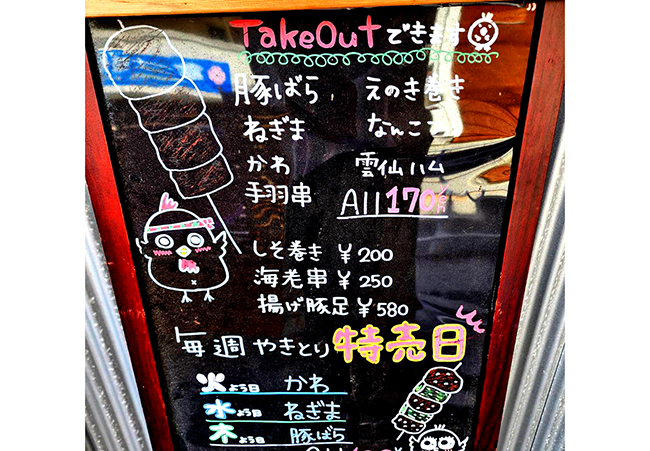 TakeOutできます
豚ばら えのき巻き
ねぎま なんこつ
かわ 雲仙ハム
手羽串 All 170
しそ巻き ¥200
海老串 ¥250
揚げ豚足 ¥580
毎週やきとり 特売日
火よう日 かわ
水よう日 ねぎま
木よう日 豚ばら